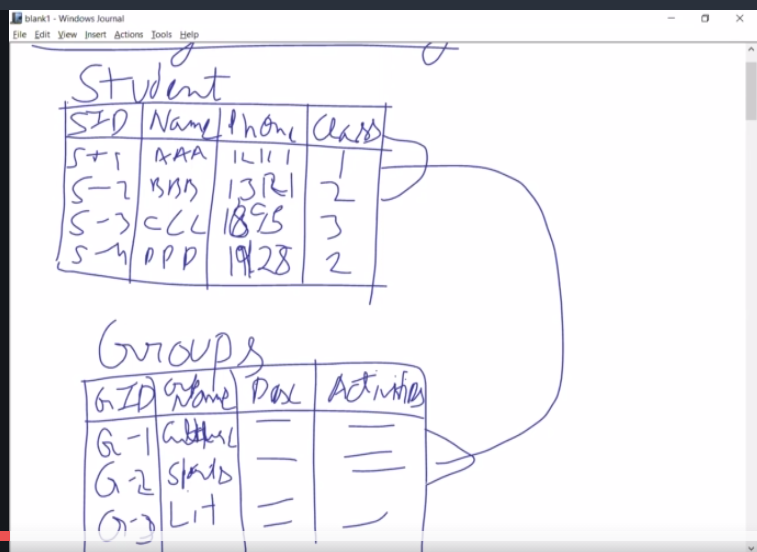 blank1 - Windows Journal
File Edit View Insert Actions Tools Help
Student
SID Name Phone Class
S-1 AAA 1
S-2 BBB 2
S-3 CCC 1895 3
S-4 DDD 19128 2
Groups
GID GName Desc Activities
G-1
G-2 Sports
G-3 Lit